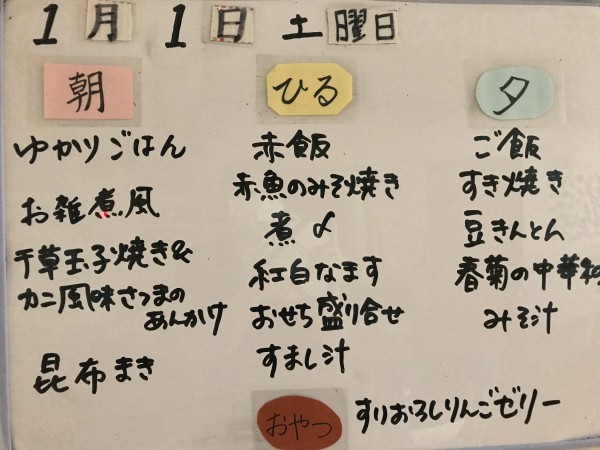 1月1日土曜日
朝
ゆかりごはん
お雑煮風
千草玉子焼き&
カニ風味さつまの
あんかけ
昆布まき
ひる
赤飯
赤魚のみそ焼き
煮〆
紅白なます
おせち盛り合せ
すまし汁
夕
ご飯
すき焼き
豆きんとん
春菊の中華和
みそ汁
おやつ
すりおろしりんごゼリー